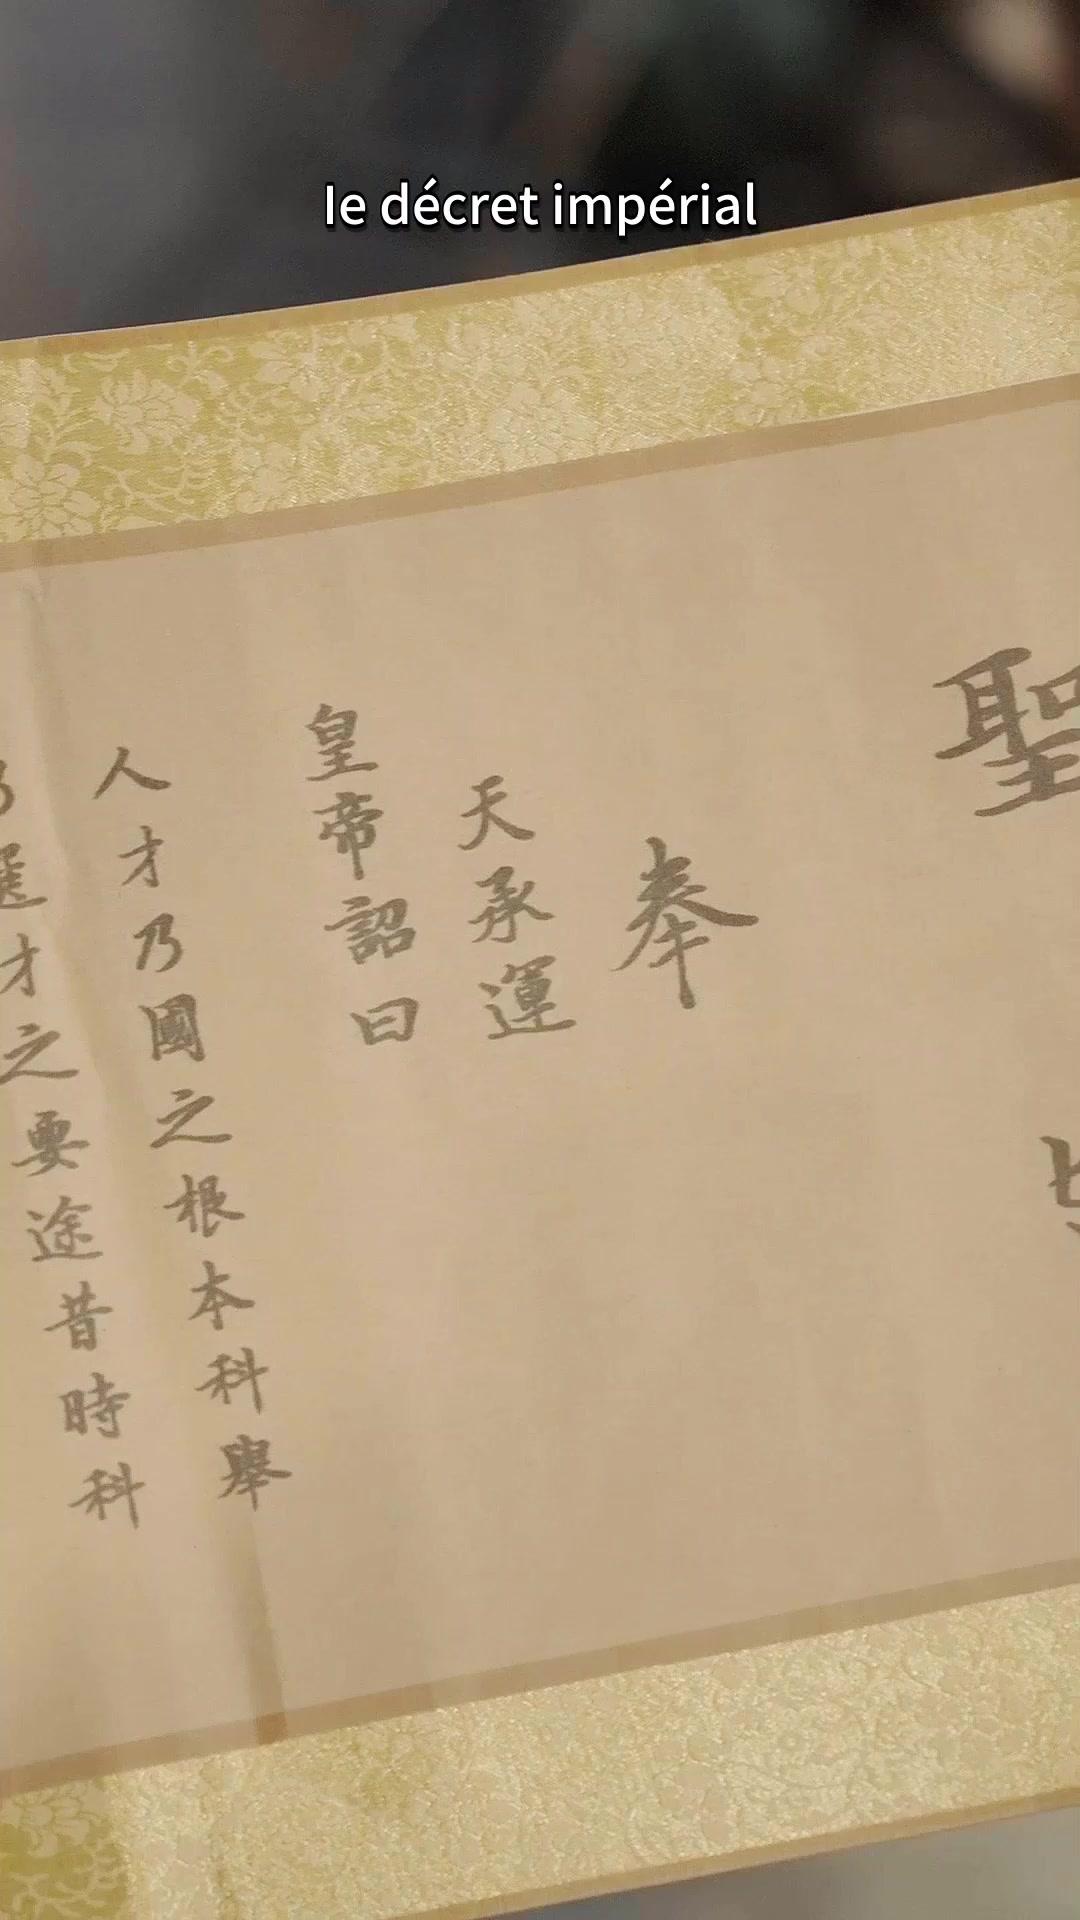 le décret impérial
聖
奉
天承運
皇帝詔曰
人才乃國之根本科舉
乃選才之要途昔時科